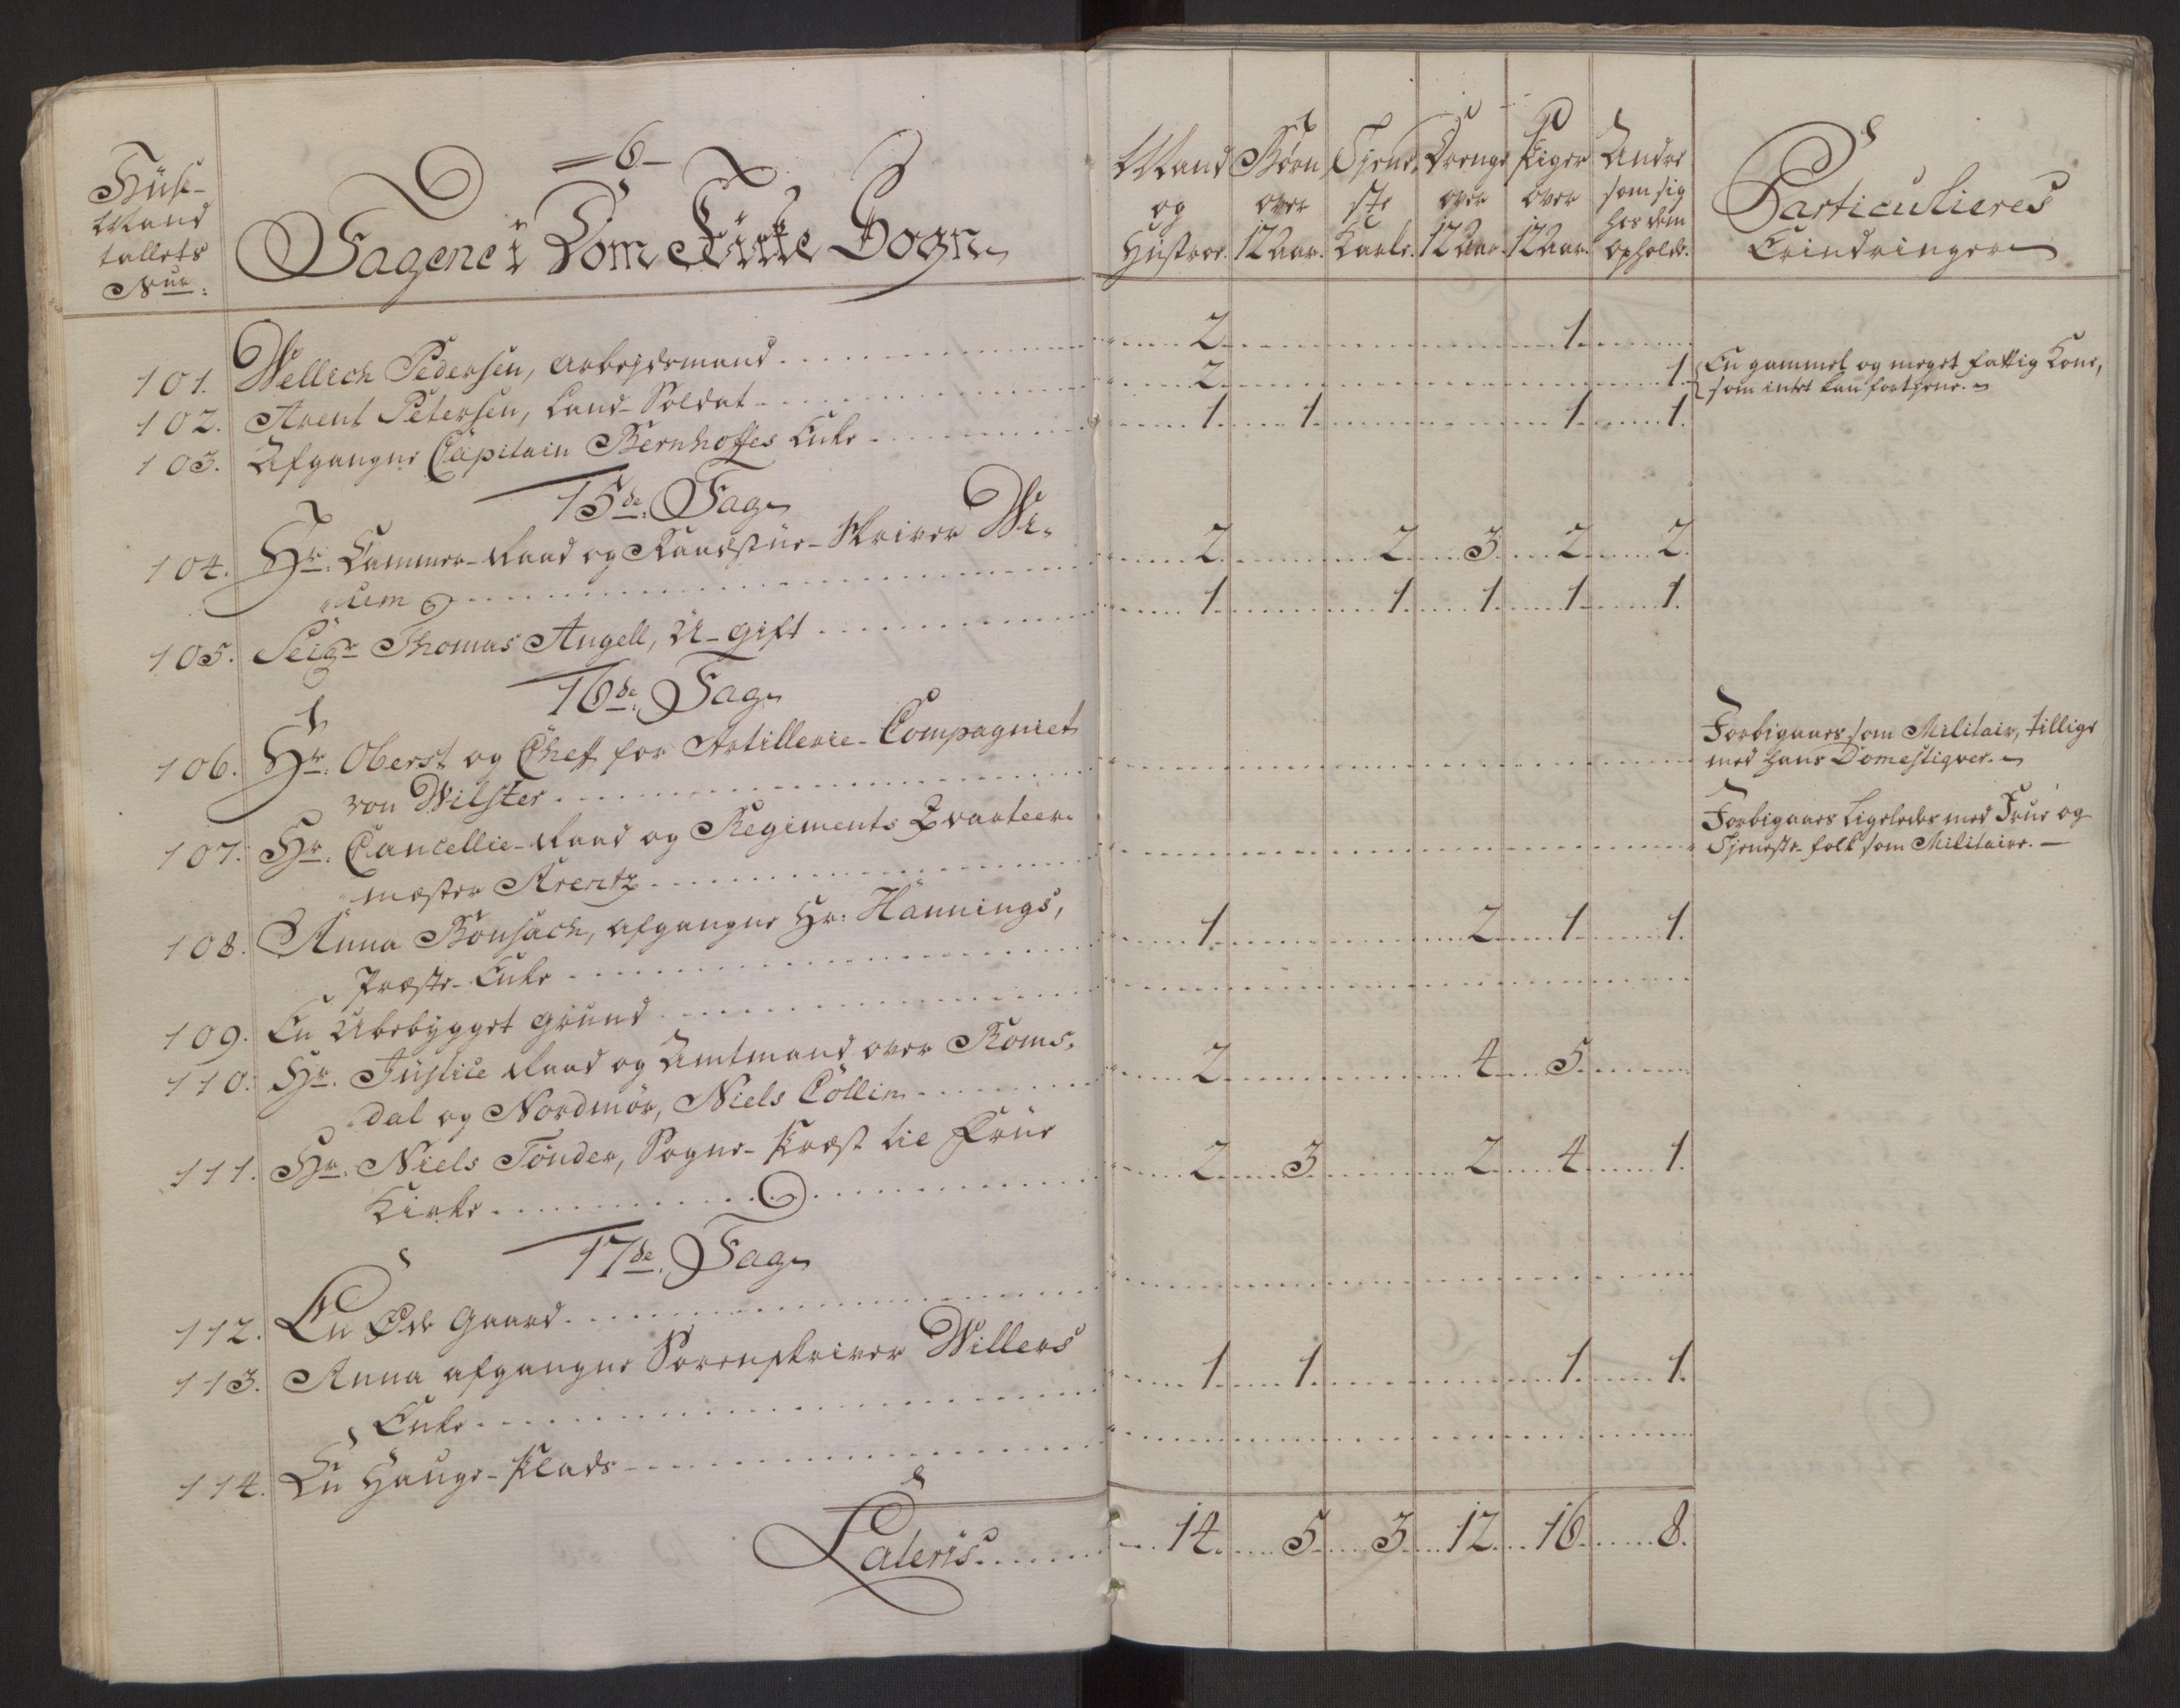 =6=
Huus-
Mand
tallets
Nur:
Tagene i Dom Kirke Sogn
Mand
og
Hustroe.
Børn
over
12 Aar.
Tjene-
ste
Karle.
Drenge
over
12 Aar.
Piger
over
12 Aar.
Andre
som sig
hos dem
opholde.
Particulieres
Erindringer
101. Wellech Pedersen, Arbejdsmand 2 1
102. Arent Petersen, Land-Soldat 2 1. En gammel og meget fattig Kone,
som intet kan fortjene.
103. Afgangne Capitain Bernhoffes Enke 1 1 1 1.
15de Tag
104. Hr: Cammer-Raad og Raadstue-Skriver We-
2 2 3 2 2.
105. Seigr Thomas Angell, U-gift 1 1 1 1 1.
16de Tag
106. Hr: Oberst og Cheff for Artillerie-Compagniet
von Wilster
Forbigaaes som Militair, tillige
med hans Domestiqver.
107. Hr: Cancellie-Raad og Regiments Qvarteer-
mæster Arentz
Forbigaaes ligeledes med Frue og
Tjeneste-folk som Militaire.
108. Anna Bonsach, afgangne Hr: Hannings,
Præste-Enke 1 2 1 1.
109. En Ubebygget Grund
110. Hr. Justice Raad og Amtmand over Roms-
dal og Nordmør, Niels Collin 2 4 5
111. Hr: Niels Tønder, Sogne-Præst til Frue
Kirke 2 3 2 4 1.
17de Tag
112. En Øde Gaard
113. Anna afgangne Sorenskriver Willers
Enke 1 1 1 1.
114. En Hauge-Plads
Lateris 14. 5 3 12 16 8.